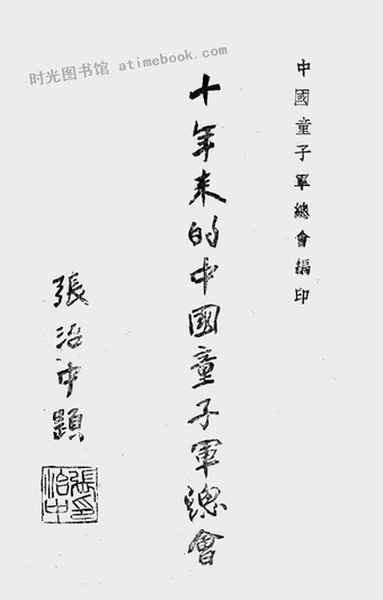 时光图书馆 atimebook.com
中國童子軍總會編印
十年来的中國童子軍總會
張治中題
張治中印